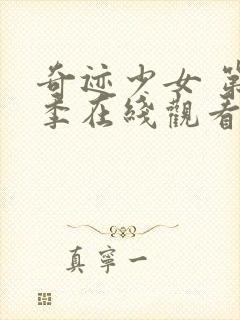 奇迹少女 第
季在綫觀看
真寧一